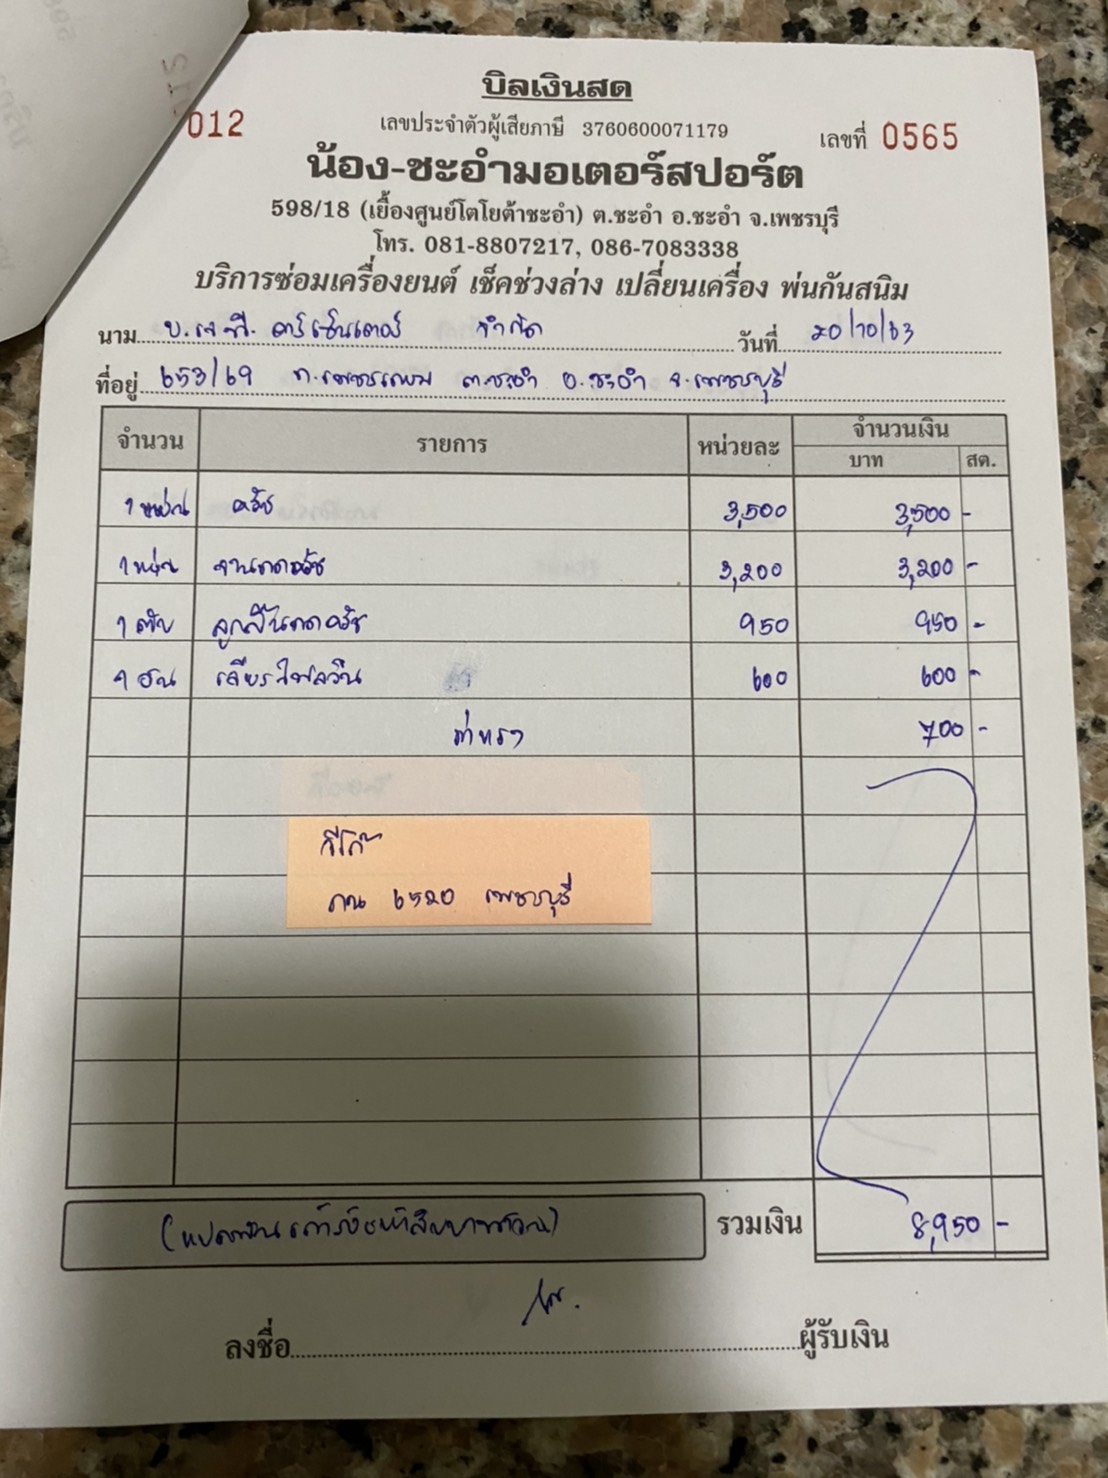 บิลเงินสด
012
เลขประจำตัวผู้เสียภาษี 3760600071179
เลขที่ 0565
น้อง-ชะอำมอเตอร์สปอร์ต
598/18 (เยื้องศูนย์โตโยต้าชะอำ) ต.ชะอำ อ.ชะอำ จ.เพชรบุรี
โทร. 081-8807217, 086-7083338
บริการซ่อมเครื่องยนต์ เช็คช่วงล่าง เปลี่ยนเครื่อง พ่นกันสนิม
นาม บ.เจ.พี. คาร์เซ็นเตอร์ จำกัด วันที่ 20/10/63
ที่อยู่ 653/69 ถ.เพชรเกษม ต.ชะอำ อ.ชะอำ จ.เพชรบุรี
จำนวน รายการ หน่วยละ จำนวนเงิน
บาท สต.
1 แผ่น ครัช 3,500 3,500 -
1 แผ่น จานกดครัช 3,200 3,200 -
1 ตลับ ลูกปืนกดครัช 950 950 -
1 อัน เจียรไฟลวีน 600 600 -
ค่าแรง 700 -
วีโก้
กน 6520 เพชรบุรี
(แปดพันเก้าร้อยห้าสิบบาทถ้วน) รวมเงิน 8,950 -
ลงชื่อ ผู้รับเงิน